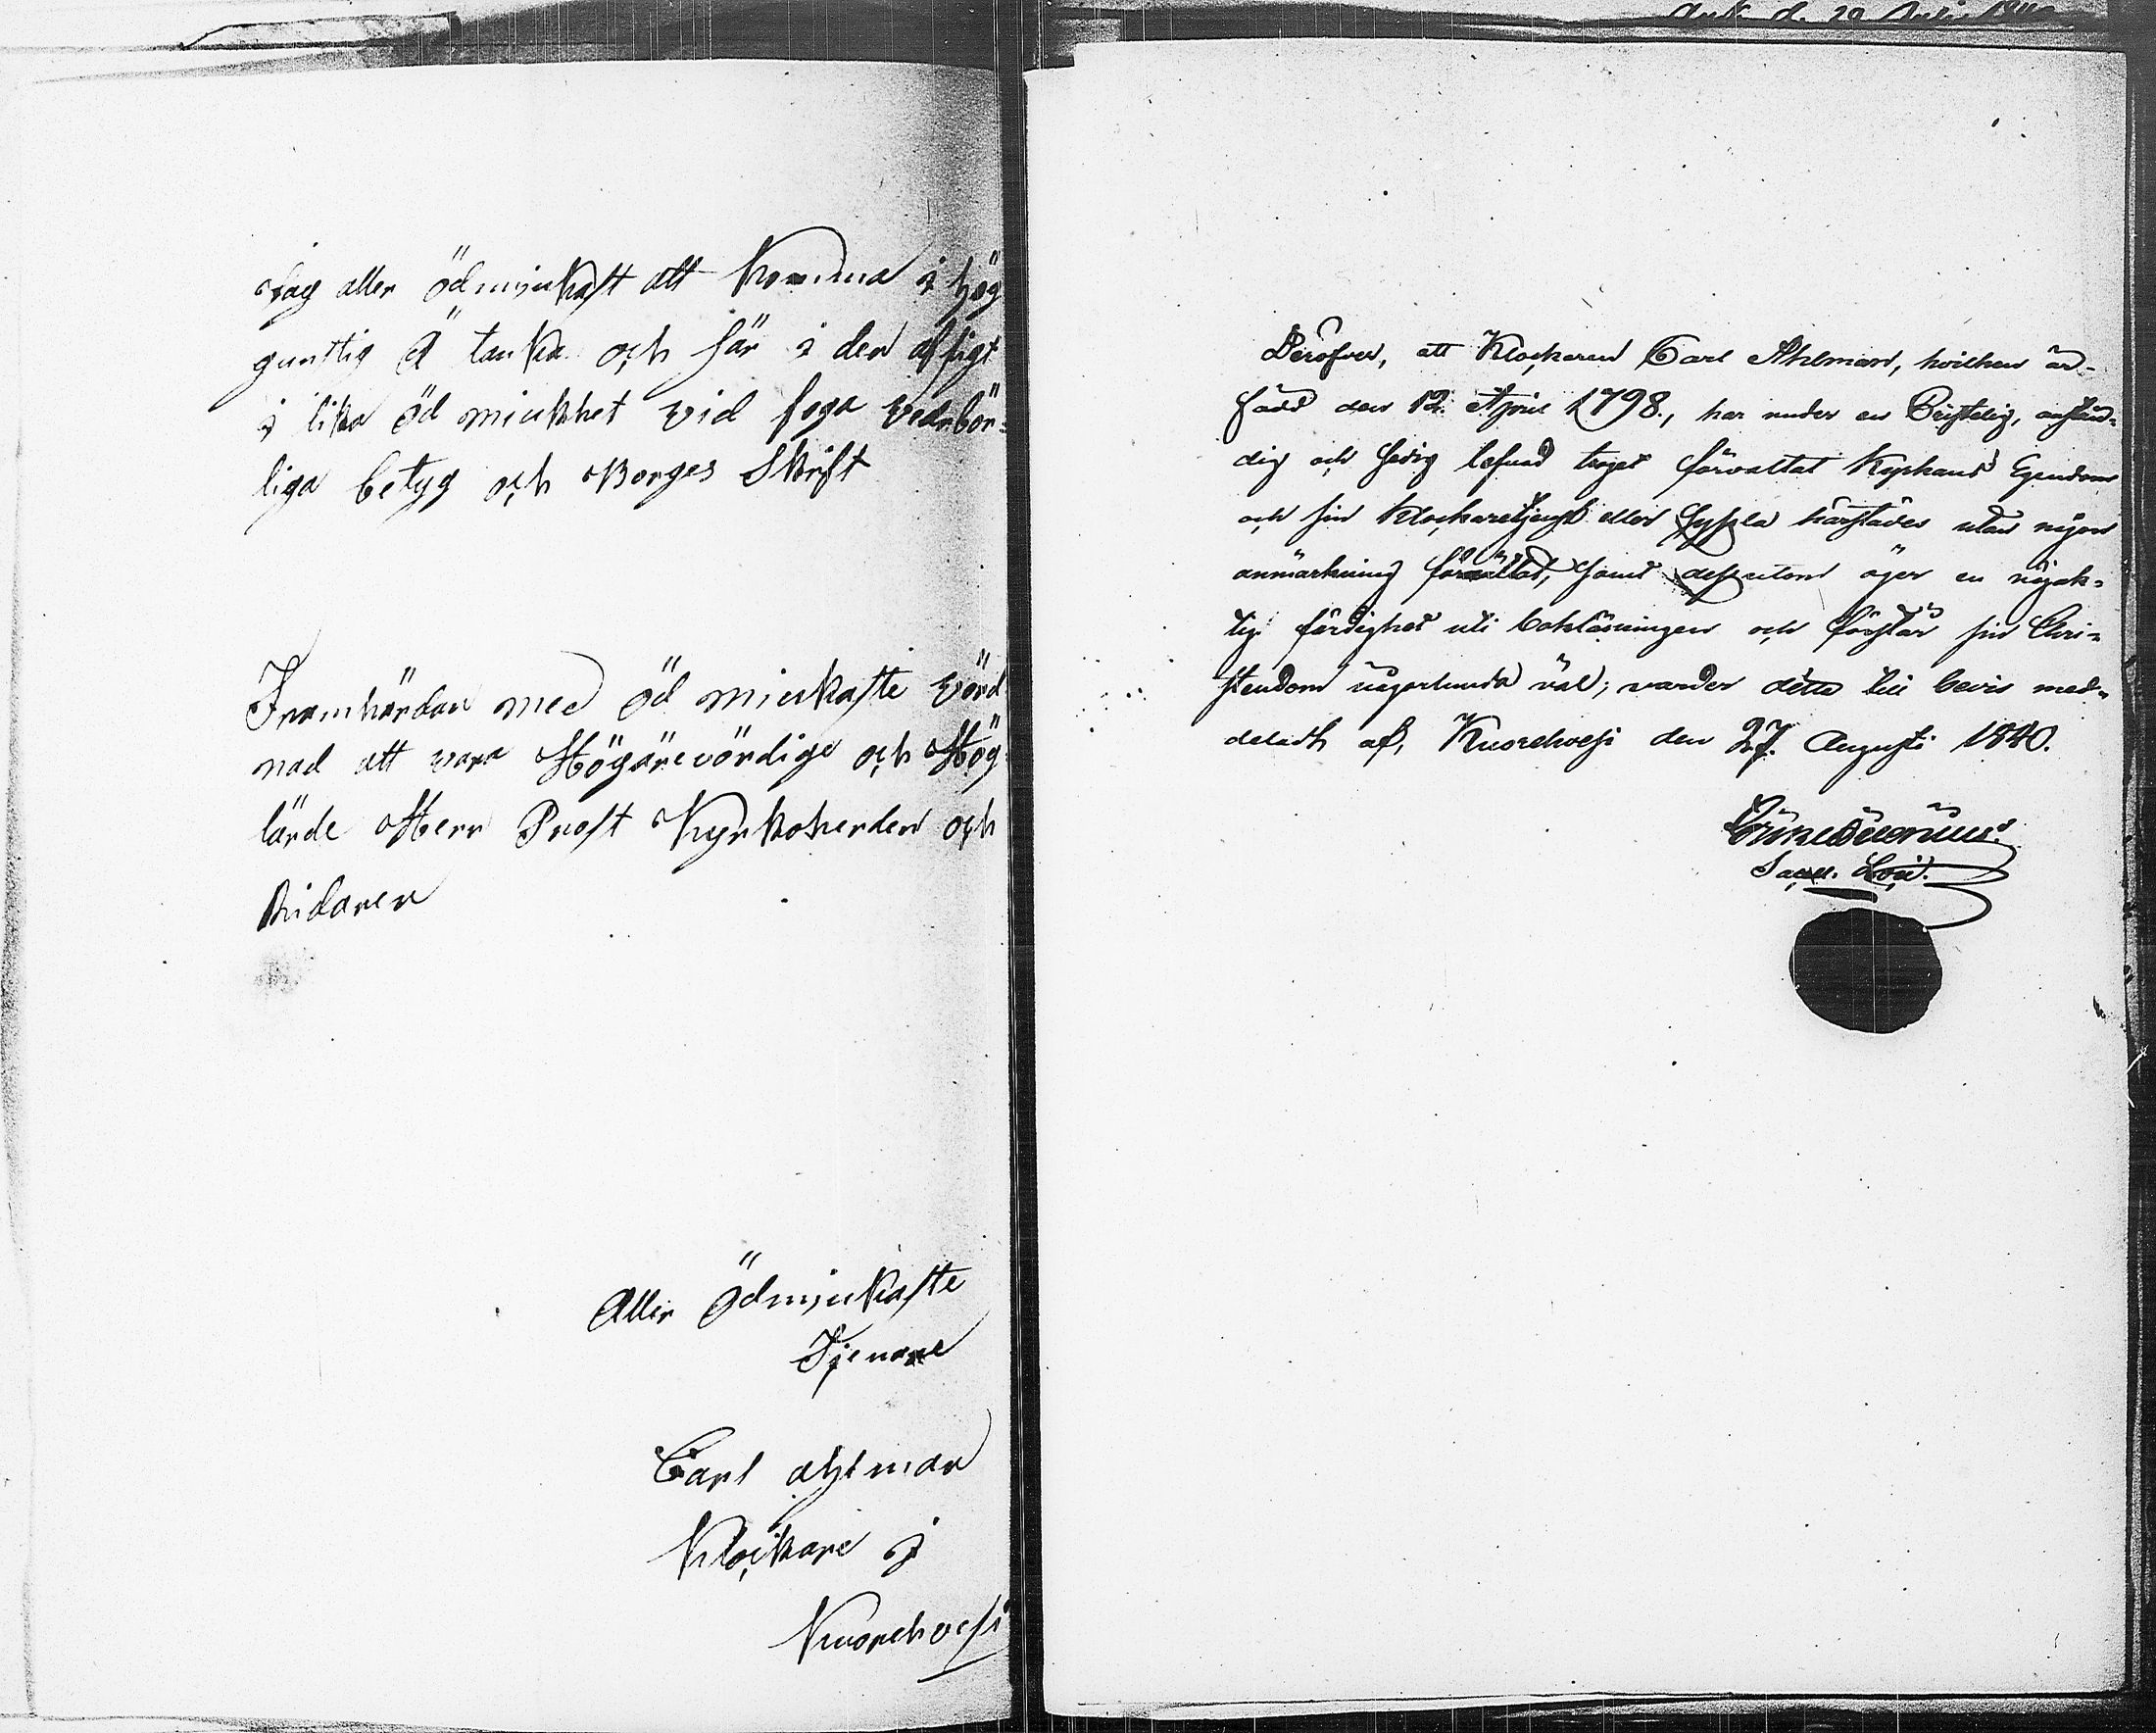 Jag aller ödmjukast att Komma i hög
gunstig å tanka och får i den afsigt
i lika öd miukhet vid foga vedrbör=
liga betyg och Borges Skrift
Framhärdar med öd miukaste vörd
nad att vara Högärevördige och Hög
lärde Herr Prost Kyrkoherden och
Ridaren
Aller ödmjukaste
Tjenare
Carl ahlman
Klockare i
Kuorehvesi
att Klockaren Carl Ahlman, hvilken är
född den 12. April 1798., har under en Cristelig, anstän=
dig och sedig lefnad troget förvaltat Kyrkans Egendom
och sin Klockaretjenst eller Syssla härstädes utan någon
anmärkning samt dessutom äger en nöjak=
tig färdighet uti bokläsningen och förstår sin Chri=
stendom någorlunda väl; varder detta till bevis med=
deladt af, Kuorehvesi den 27. Augusti 1840.